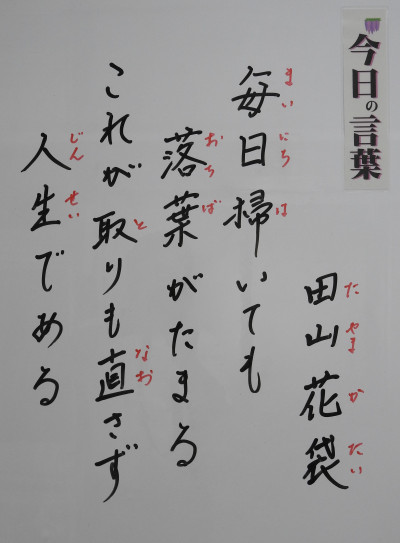 今日の言葉
田山花袋
たやまかたい
毎日掃いても
まいにちは
落葉がたまる
おちば
これが取りも直さず
となお
人生である
じんせい